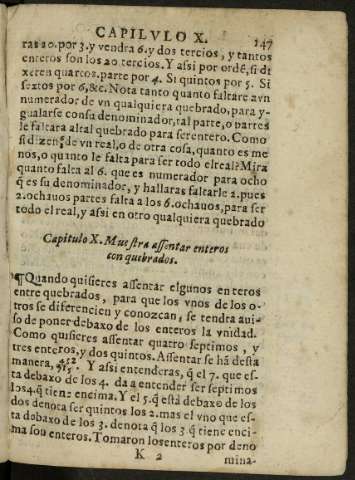 CAPILVLO X. 147
ras 20. por 3. y vendra 6. y dos tercios, y tantos
enteros son los 20 tercios. Y assi por ordē, si di
xeren quartos. parte por 4. Si quintos por 5. Si
sextos por 6, &c. Nota tanto quanto faltare a vn
numerador de vn qualquiera quebrado, para y-
gualarse con su denominador, tal parte, o partes
le faltara al tal quebrado para ser entero. Como
si dizen de vn real, o de otra cosa, quanto es me
nos, o quanto le falta para ser todo el real? Mira
quanto falta al 6. que es numerador para ocho
q̄ es su denominador, y hallaras faltarle 2. pues
2. ochauos partes falta a los 6. ochauos, para ser
todo el real, y assi en otro qualquiera quebrado
Capitulo X. Muestra assentar enteros
con quebrados.
¶Quando quisieres assentar algunos enteros
entre quebrados, para que los vnos de los o-
tros se diferencien y conozcan, se tendra aui-
so de poner debaxo de los enteros la vnidad.
Como quisieres assentar quatro septimos, y
tres enteros, y dos quintos. Assentar se hā desta
manera, Y assi entenderas, q̄ el 7. que es-
ta debaxo de los 4. da a entender ser septimos
los 4. q̄ tiene encima. Y el 5. q̄ está debaxo de los
dos denota ser quintos los 2. mas el vno que es-
ta dobaxo de los 3. denota q̄ los 3 q̄ tiene enci
ma son enteros. Tomaron los enteros por deno
K 2 mina-